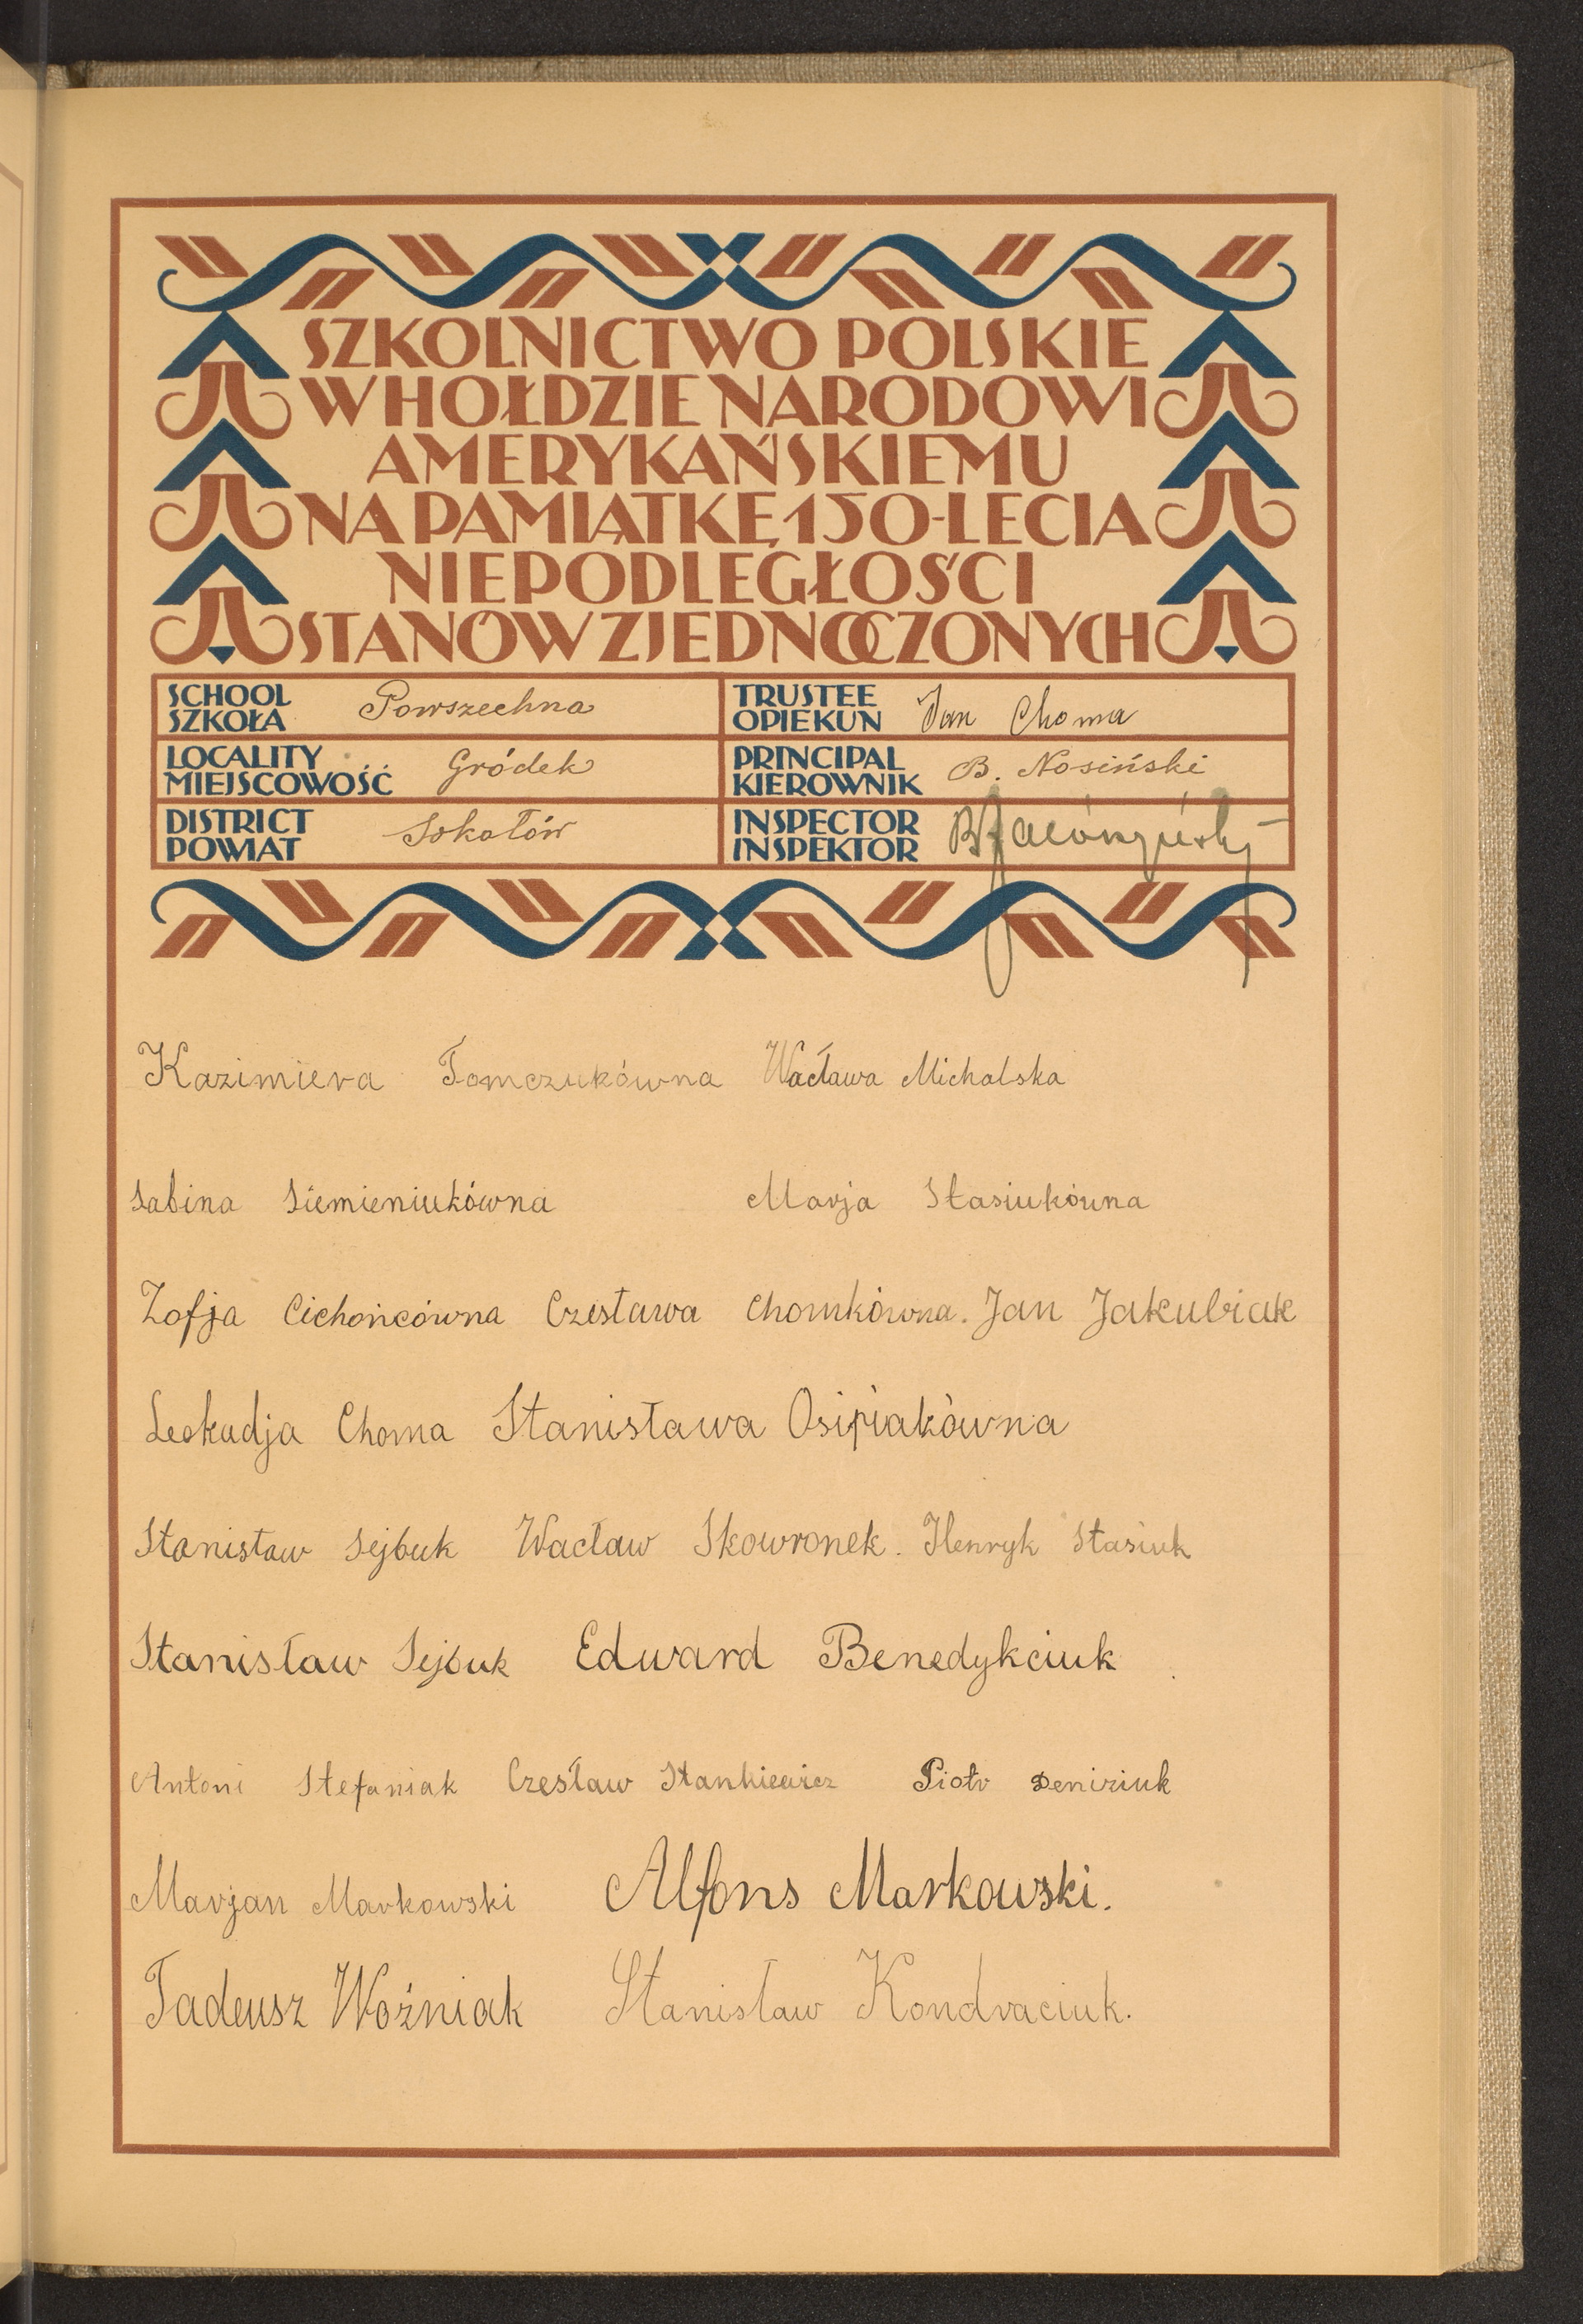 SZKOLNICTWO POLSKIE
W HOŁDZIE NARODOWI
AMERYKAŃSKIEMU
NA PAMIĄTKĘ 150-LECIA
NIEPODLEGŁOŚCI
STANÓW ZJEDNOCZONYCH
SCHOOL
SZKOŁA Powszechna
TRUSTEE
OPIEKUN Jan Choma
LOCALITY
MIEJSCOWOŚĆ Gródek
PRINCIPAL
KIEROWNIK B. Nosiński
DISTRICT
POWIAT Sokołów
INSPECTOR
INSPEKTOR
Kazimiera Tomczukówna Wacława Michalska
Sabina Siemieniukówna Marja Stasiukówna
Zofja Cichońcówna Czesława Chomkówna. Jan Jakubiak
Leokadja Choma Stanisława Osipiakówna
Stanisław Sejbuk Wacław Skowronek. Henryk Stasiuk
Stanisław Sejbuk Edward Benedykciuk
Antoni Stefaniak Czesław Stankiewicz Piotr Deniziuk
Marjan Markowski Alfons Markowski.
Tadeusz Woźniak Stanisław Kondraciuk.